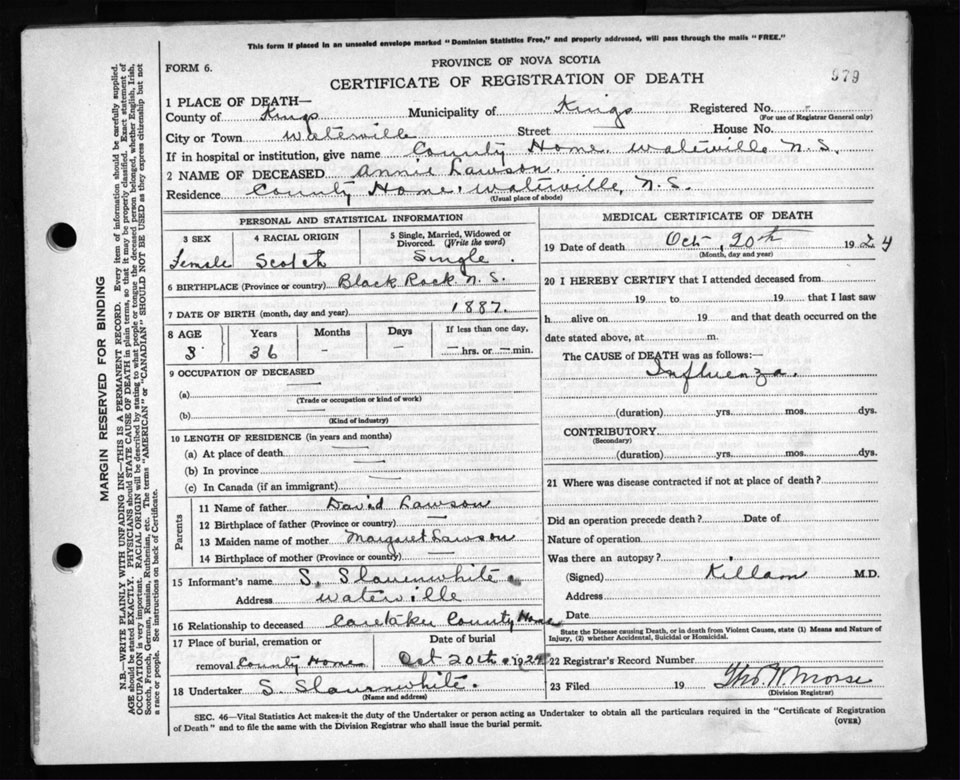 This form if placed in an unsealed envelope marked "Dominion Statistics Free," and properly addressed, will pass through the mails "FREE."
FORM 6.
PROVINCE OF NOVA SCOTIA
979
CERTIFICATE OF REGISTRATION OF DEATH
1 PLACE OF DEATH—
County of Kings Municipality of Kings Registered No.
(For use of Registrar General only)
City or Town Waterville Street House No.
If in hospital or institution, give name County Home. Waterville N.S.
2 NAME OF DECEASED Annie Lawson.
Residence County Home. Waterville, N.S.
(Usual place of abode)
PERSONAL AND STATISTICAL INFORMATION
3 SEX 4 RACIAL ORIGIN 5 Single, Married, Widowed or Divorced. (Write the word)
Female Scotch Single.
6 BIRTHPLACE (Province or country) Black Rock N.S.
7 DATE OF BIRTH (month, day and year) 1887.
8 AGE Years Months Days If less than one day,
3 36 – – – hrs. or – min.
9 OCCUPATION OF DECEASED
(a)
(Trade or occupation or kind of work)
(b)
(Kind of industry)
10 LENGTH OF RESIDENCE (in years and months)
(a) At place of death
(b) In province
(c) In Canada (if an immigrant)
Parents
11 Name of father David Lawson
12 Birthplace of father (Province or country)
13 Maiden name of mother Margaret Lawson
14 Birthplace of mother (Province or country)
15 Informant's name S. Slaunwhite
Address Waterville
16 Relationship to deceased Caretaker County Home
17 Place of burial, cremation or removal County Home Date of burial Oct 20th 1924
18 Undertaker S. Slaunwhite.
(Name and address)
MEDICAL CERTIFICATE OF DEATH
19 Date of death Oct, 20th 1924
(Month, day and year)
20 I HEREBY CERTIFY that I attended deceased from
19 to 19 that I last saw
h alive on 19 and that death occurred on the
date stated above, at m.
The CAUSE of DEATH was as follows:—
Influenza.
(duration) yrs. mos. dys.
CONTRIBUTORY
(Secondary)
(duration) yrs. mos. dys.
21 Where was disease contracted if not at place of death?
Did an operation precede death? Date of
Nature of operation
Was there an autopsy?
(Signed) Killam M.D.
Address
Date
State the Disease causing Death, or in death from Violent Causes, state (1) Means and Nature of Injury, (2) whether Accidental, Suicidal or Homicidal.
22 Registrar's Record Number
23 Filed 19 Tho. W Morse
(Division Registrar)
SEC. 46—Vital Statistics Act makes it the duty of the Undertaker or person acting as Undertaker to obtain all the particulars required in the "Certificate of Registration
of Death" and to file the same with the Division Registrar who shall issue the burial permit.
(OVER)
MARGIN RESERVED FOR BINDING
N.B.—WRITE PLAINLY WITH UNFADING INK—THIS IS A PERMANENT RECORD. Every item of information should be carefully supplied.
AGE should be stated EXACTLY. PHYSICIANS should STATE CAUSE OF DEATH in plain terms, so that it may be properly classified. Exact statement of
OCCUPATION is very important. RACIAL ORIGIN will be described by stating to what people or tongue the deceased person belonged, whether English, Irish,
Scotch, French, German, Russian, Ruthenian, etc. The terms "AMERICAN" or "CANADIAN" SHOULD NOT BE USED as they express citizenship but not
a race or people. See instructions on back of Certificate.